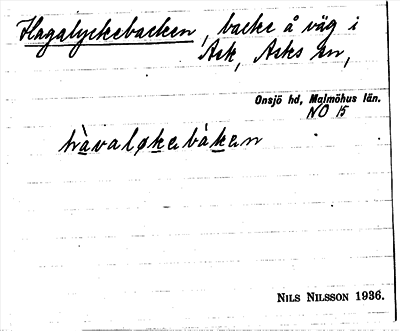 Hagalyckebacken, backe å väg i
Ask, Asks sn,
Onsjö hd, Malmöhus län.
NO 15
hàvaløkebàken
NILS NILSSON 1936.